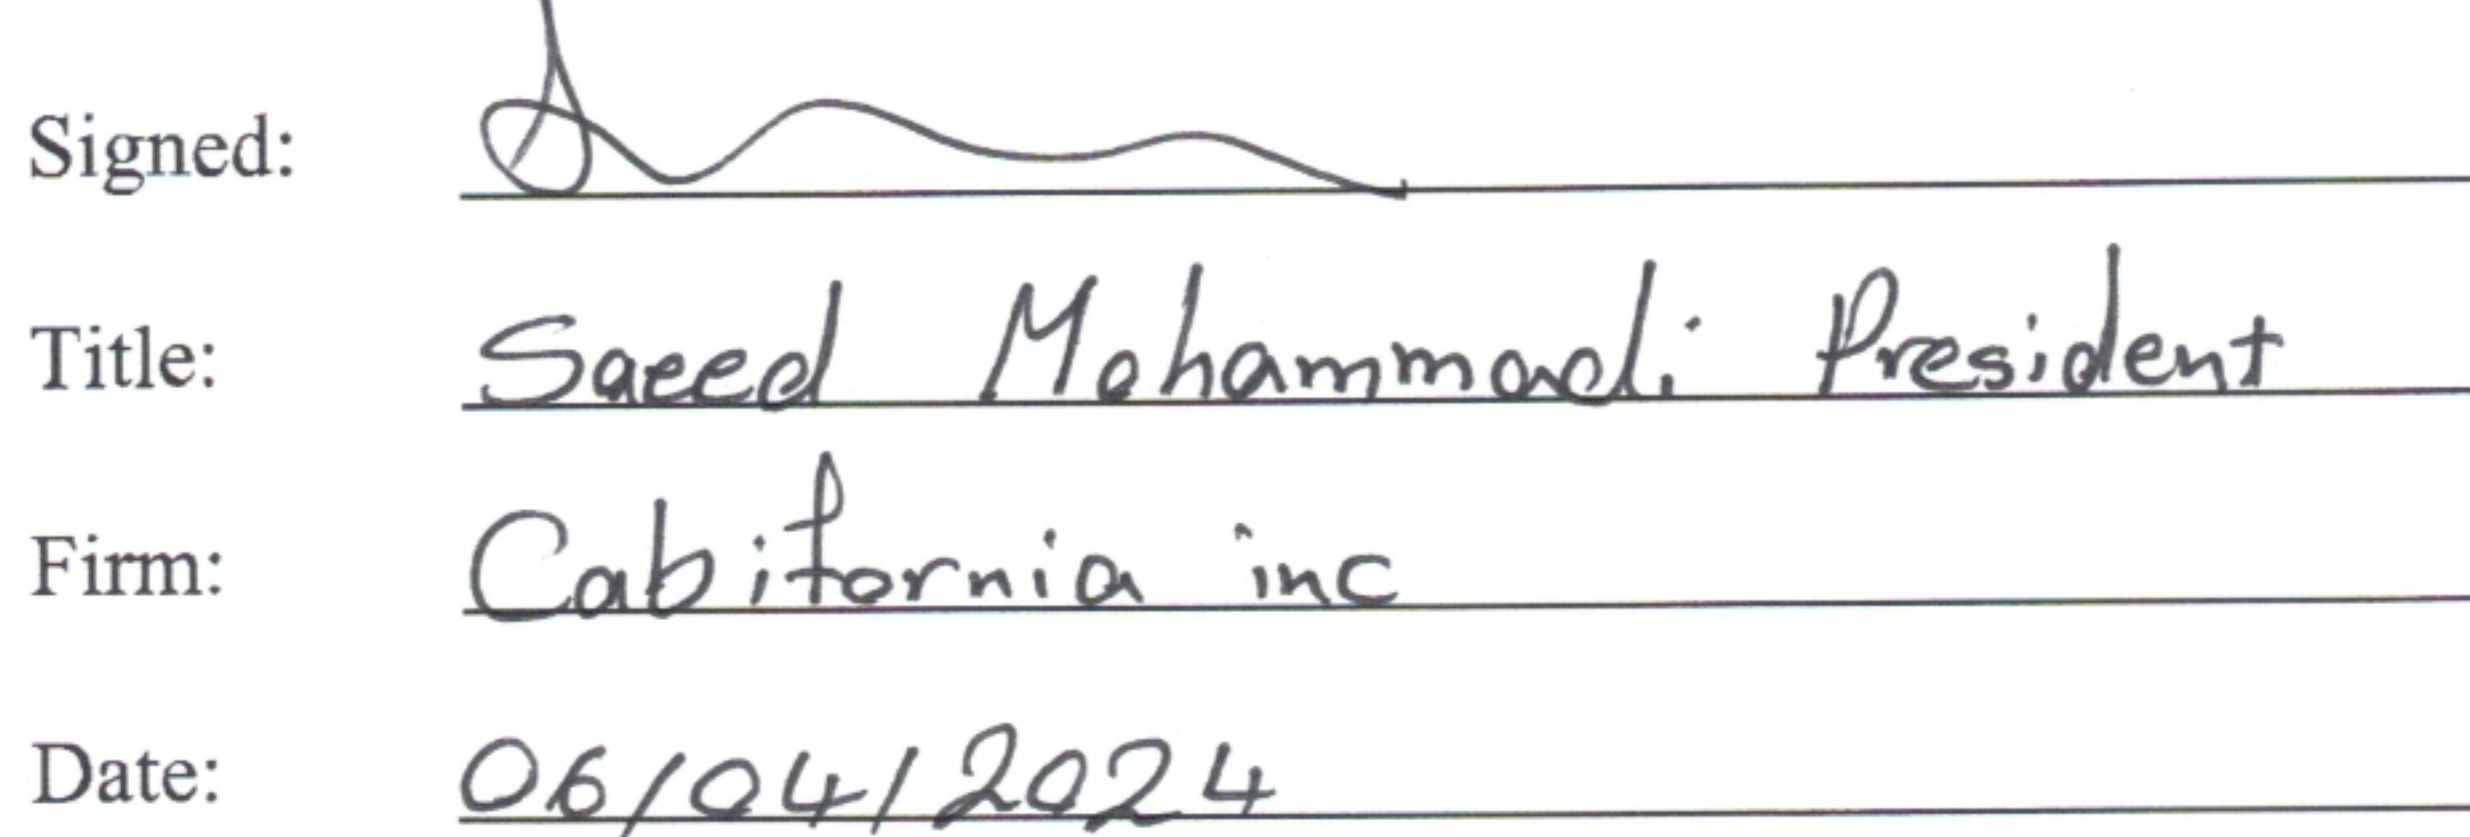 Signed:
Title: Saeed Mohammadi President
Firm: Cabifornia inc
Date: 06/04/2024